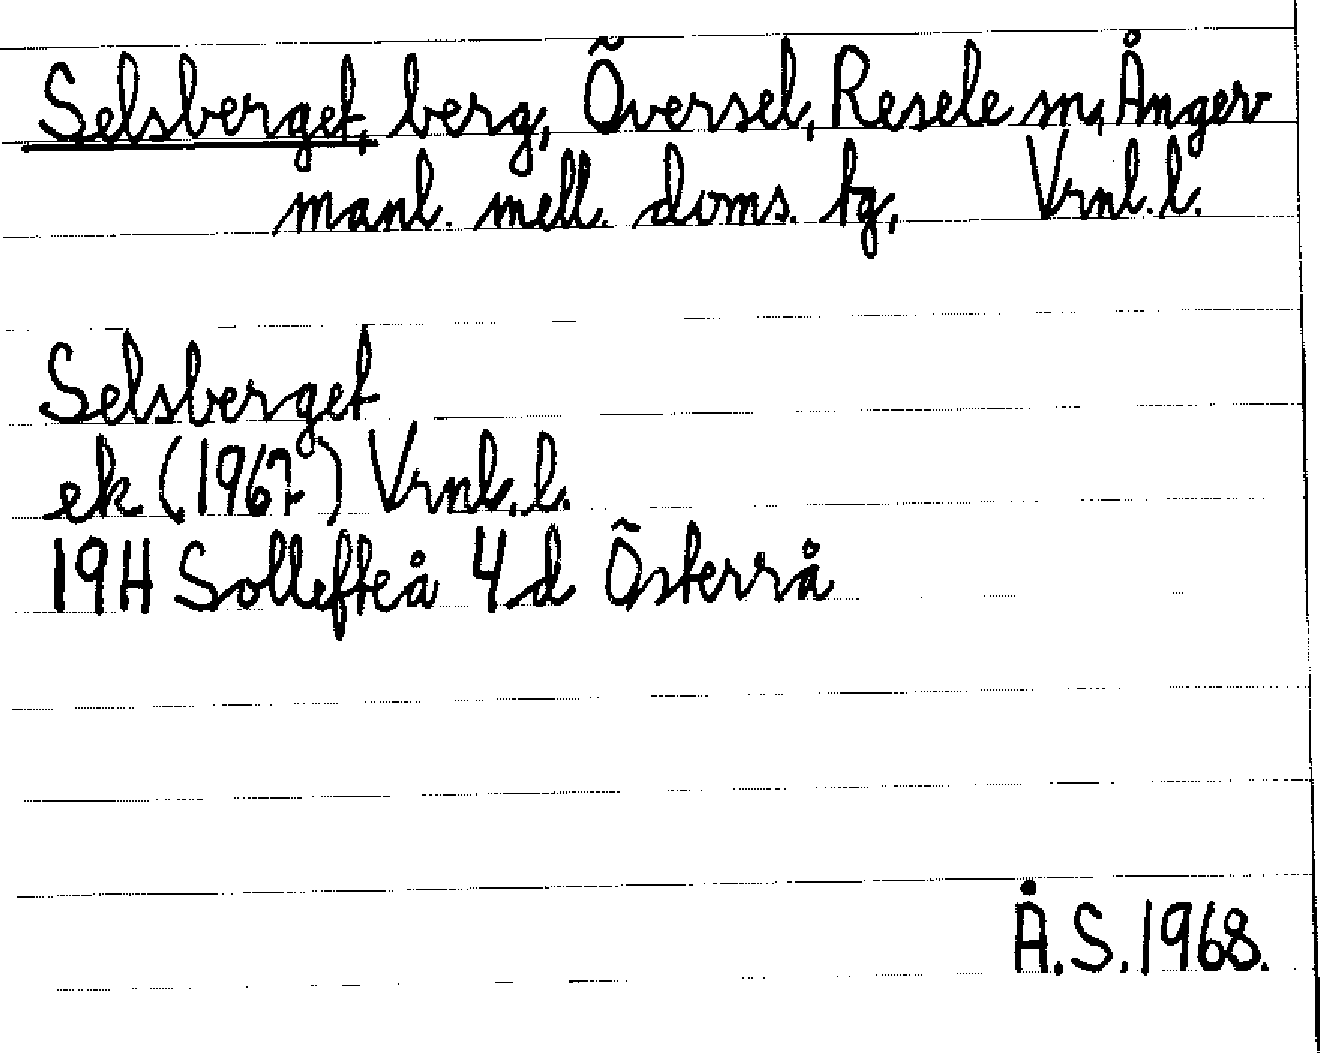 Selsberget, berg, Översel, Resele sn, Ånger
manl. mell. doms. tg, Vrnl. l.
Selsberget
ek (1967) Vrnl. l.
19H Sollefteå 4d Österrå
Å.S. 1968.